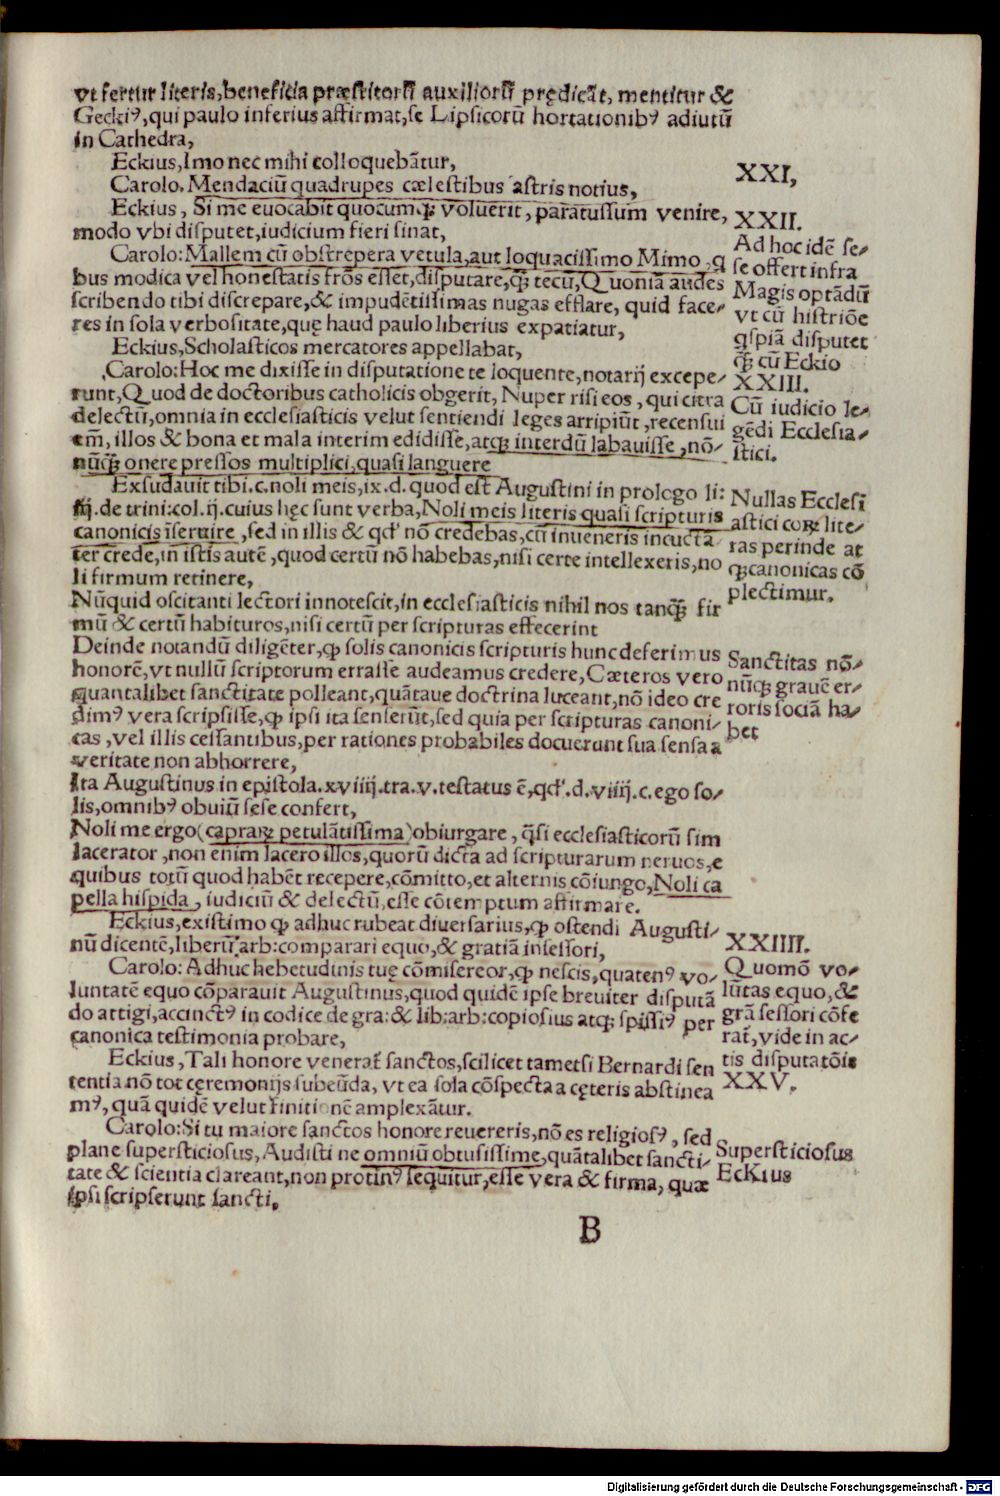 vt fertur literis, beneficia præstitorū auxiliorū prędicāt, mentitur &
Geckiꝰ, qui paulo inferius affirmat, se Lipsicorū hortationibꝰ adiutū
in Cathedra,
Eckius, Imo nec mihi colloquebātur,
Carolo. Mendaciū quadrupes cælestibus astris notius,
XXI,
Eckius, Si me euocabit quocumqꝫ voluerit, paratussum venire,
modo vbi disputet, iudicium fieri sinat,
XXII.
Carolo: Mallem cū obstrepera vetula, aut loquacissimo Mimo, q
bus modica vel honestatis frōs esset, disputare, qꝫ tecū, Quoniā audes
scribendo tibi discrepare, & impudētissimas nugas efflare, quid face⸗
res in sola verbositate, quę haud paulo liberius expatiatur,
Ad hoc idē se⸗
se offert infra
Magis optādū
vt cū histriōe
qspiā disputet
qꝫ cū Eckio
Eckius, Scholasticos mercatores appellabat,
Carolo: Hoc me dixisse in disputatione te loquente, notarij excepe⸗
runt, Quod de doctoribus catholicis obgerit, Nuper risi eos, qui citra
delectū, omnia in ecclesiasticis velut sentiendi leges arripiūt, recensui
em̄, illos & bona et mala interim edidisse, atqꝫ interdū labauisse, nō⸗
nūqꝫ onere pressos multiplici, quasi languere
XXIII.
Cū iudicio le⸗
gēdi Ecclesia⸗
stici.
Exsudauit tibi .c. noli meis, ix. d. quod est Augustini in prologo li:
iij. de trini: col. ij. cuius hęc sunt verba, Noli meis literis quasi scripturis
canonicis īseruire, sed in illis & qd' nō credebas, cū inueneris incūcta
ter crede, in istis autē, quod certū nō habebas, nisi certe intellexeris, no
li firmum retinere,
Nullas Ecclesi
astici coꝝ lite⸗
ras perinde at
qꝫ canonicas cō
plectimur.
Nūquid oscitanti lectori innotescit, in ecclesiasticis nihil nos tanqꝫ fir
mū & certū habituros, nisi certū per scripturas effecerint
Deinde notandū diligēter, ꝙ solis canonicis scripturis hunc deferimus
honorē, vt nullū scriptorum errasse audeamus credere, Cæteros vero
quantalibet sanctitate polleant, quātaue doctrina luceant, nō ideo cre
dimꝰ vera scripsisse, ꝙ ipsi ita senserūt, sed quia per scripturas canoni⸗
cas, vel illis cessantibus, per rationes probabiles docuerunt sua sensa a
veritate non abhorrere,
Sanctitas nō⸗
nūqꝫ grauē er⸗
roris sociā ha⸗
bet
Ita Augustinus in epistola .xviiij. tra. v. testatus ē, qd'. d. viiij. c. ego so⸗
lis, omnibꝰ obuiū sese confert,
Noli me ergo (caprarꝫ petulātissima) obiurgare, q̄si ecclesiasticorū sim
lacerator, non enim lacero illos, quorū dicta ad scripturarum neruos, e
quibus totū quod habēt recepere, cōmitto, et alternis cōiungo, Noli ca
pella hispida, iudiciū & delectū, esse cōtemptum affirmare.
Eckius, existimo ꝙ adhuc rubeat diuersarius, ꝙ ostendi Augusti⸗
nū dicentē, liberū arb: comparari equo, & gratiā insessori,
Carolo: Adhuc hebetudinis tuę cōmisereor, ꝙ nescis, quatenꝰ vo⸗
luntatē equo cōparauit Augustinus, quod quidē ipse breuiter disputā
do attigi, accinctꝰ in codice de gra: & lib: arb: copiosius atqꝫ spissiꝰ per
canonica testimonia probare,
XXIIII.
Quomō vo⸗
lūtas equo, &
grā sessori cōfe
rat̄, vide in ac⸗
tis disputatōis
Eckius, Tali honore venerat̄ sanctos, scilicet tametsi Bernardi sen
tentia nō tot cęremonijs subeūda, vt ea sola cōspecta a cęteris abstinea
mꝰ, quā quidē velut finitionē amplexātur.
XXV.
Carolo: Si tu maiore sanctos honore reuereris, nō es religiosꝰ, sed
plane supersticiosus, Audisti ne omniū obtusissime, quātalibet sancti⸗
tate & scientia clareant, non protinꝰ sequitur, esse vera & firma, quæ
ipsi scripserunt sancti,
Supersticiosus
EcKius
B
Digitalisierung gefördert durch die Deutsche Forschungsgemeinschaft - DFG